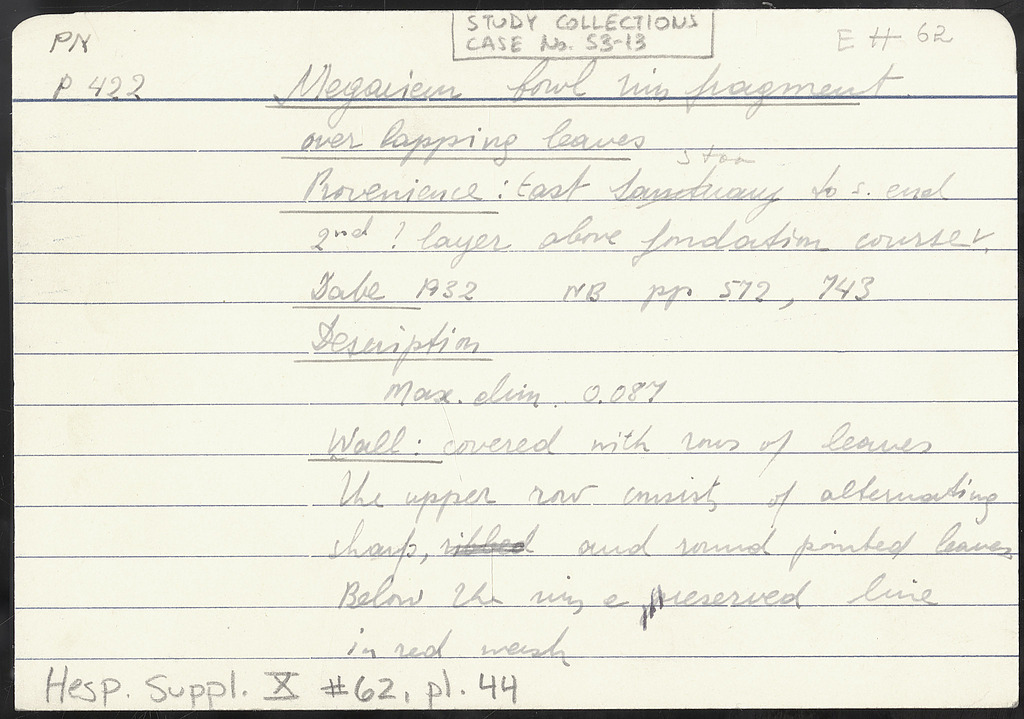 STUDY COLLECTIONS
CASE No. 53-13
PN
E # 62
P 422
Megarian bowl rim fragment.
over lapping leaves
Stoa
Provenience : East Sanctuary to s. end
2nd ? layer above fondation courses.
Date 1932 NB pp 572, 743
Description
Max. dim. 0.087
Wall : covered with rows of leaves
The upper row consists of alternating
sharp, ribbed and round pointed leaves
Below the rim a reserved line
in red wash
Hesp. Suppl. X #62, pl. 44